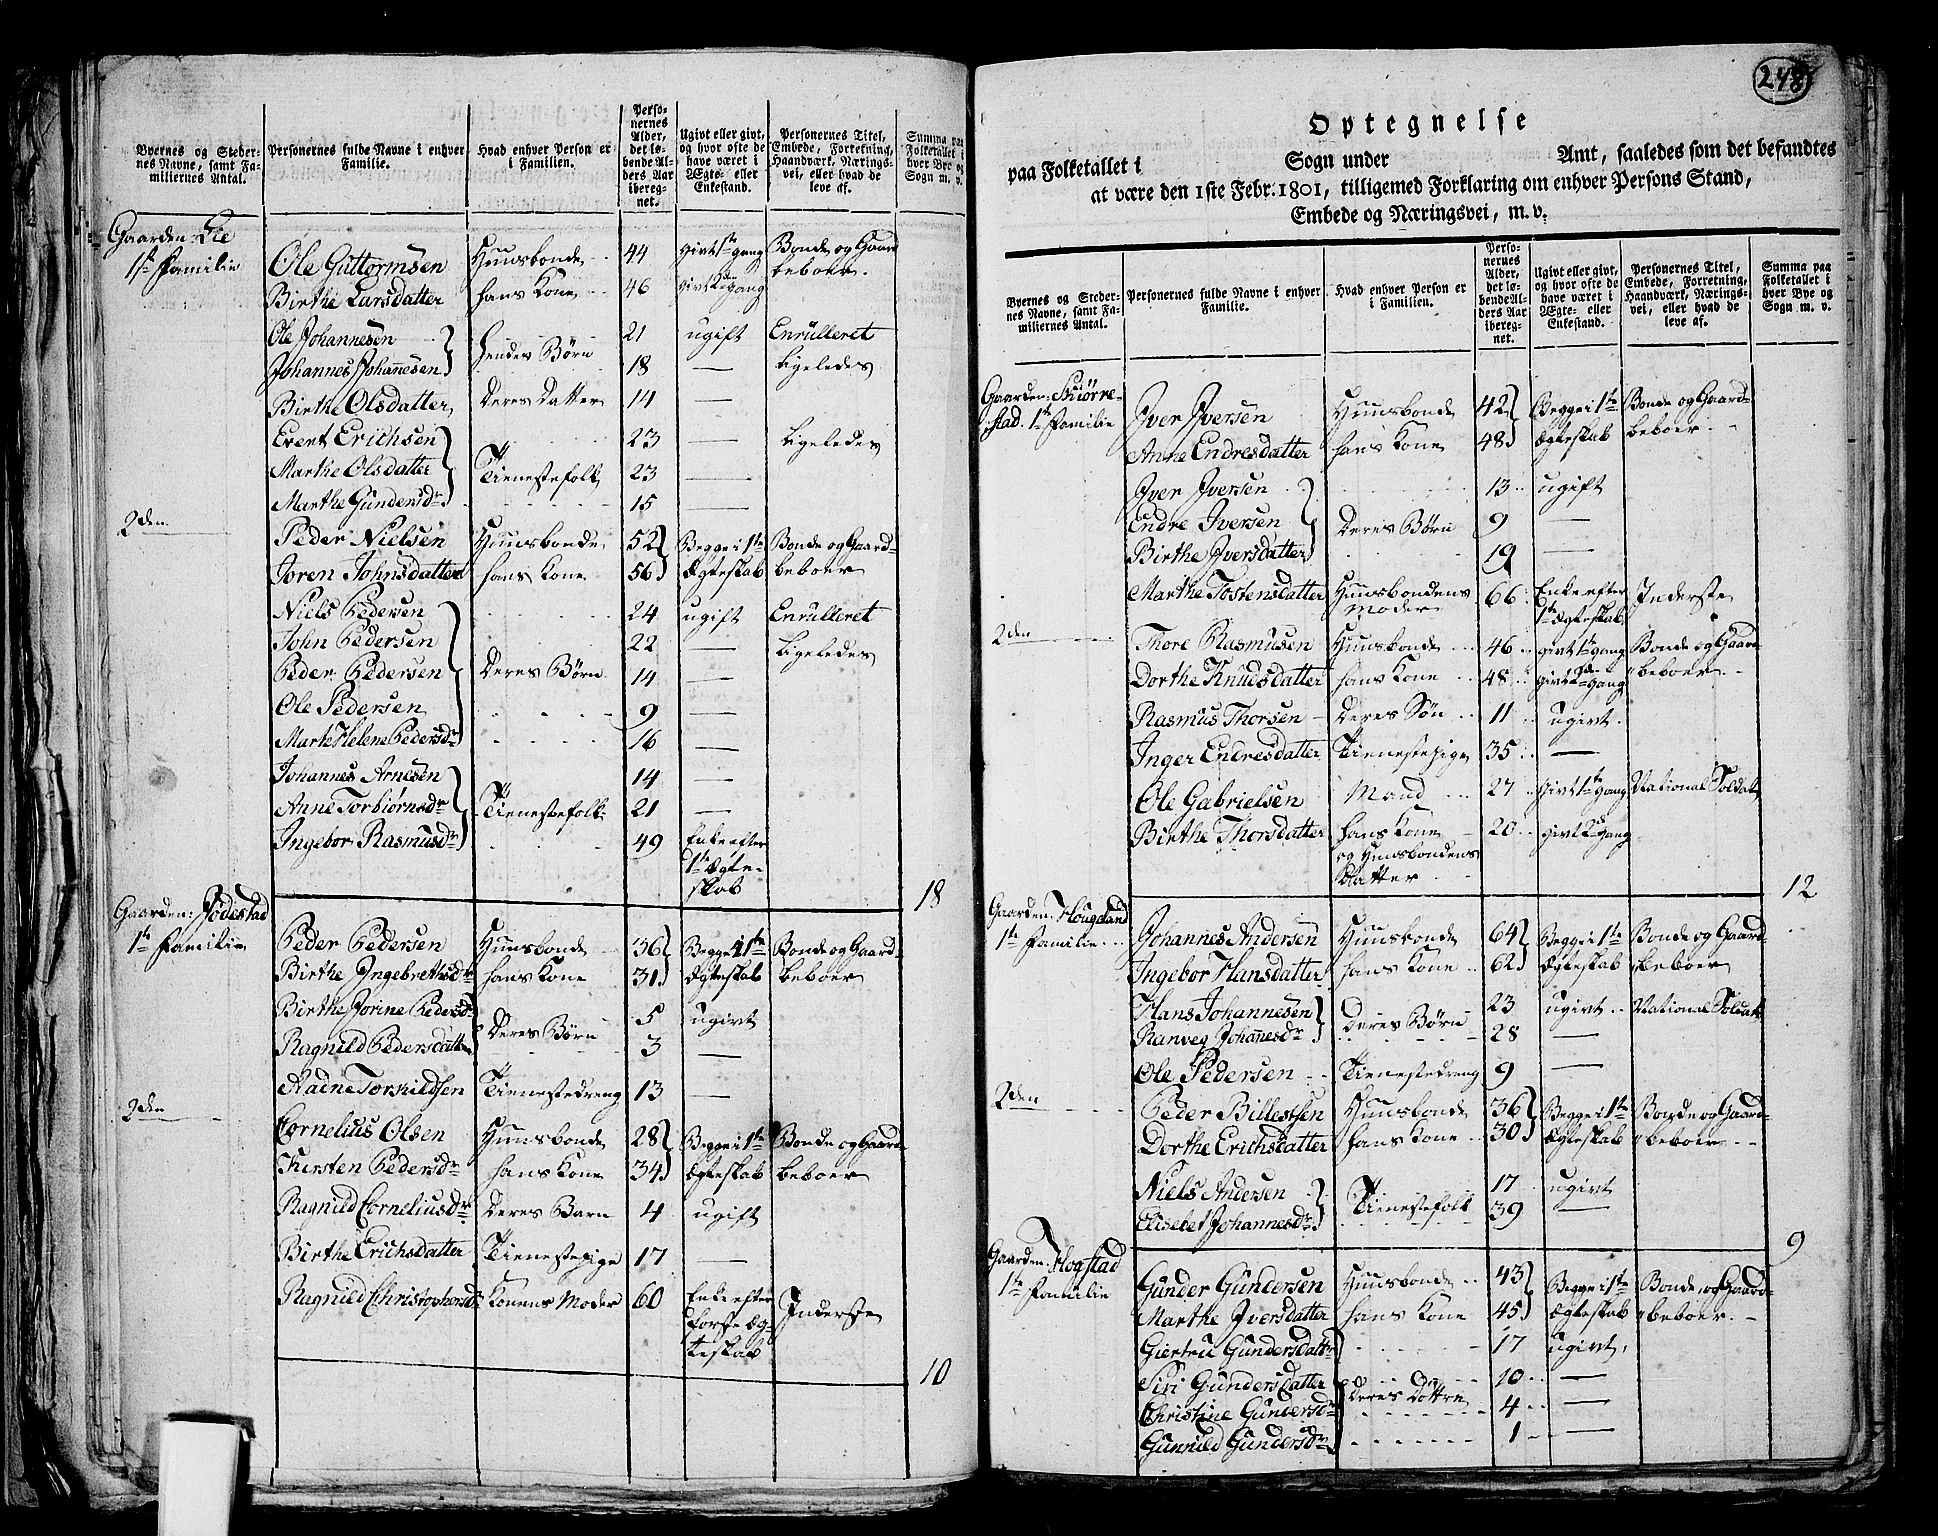 Byernes og Steder-
nes Navne, samt Fa-
miliernes Antal.
Personernes fulde Navne i enhver
Familie.
Hvad enhver Person er
i Familien.
Perso-
nernes
Alder,
det lø-
bende Al-
ders Aar
ibereg-
net.
Ugivt eller givt,
og hvor ofte de
have været i
Ægte- eller
Enkestand.
Personernes Titel,
Embede, Forretning,
Haandværk, Nærings-
vei, eller hvad de
leve af.
Summa paa
Folketallet i
hver Bye og
Sogn m. v.
Gaarden: Lie
1ste Familie
Ole Guttormsen Huusbonde 44 givt 1ste gang Bonde og Gaard
beboer.
Birthe Larsdatter hans Kone 46 givt 2den gang
Ole Johannesen 21 ugift Enrulleret
hendes Børn
Johannes Johannesen 18 — Ligeledes
Birthe Olsdatter Deres Datter 14 —
Evert Erichsen 23 — Ligeledes
Marthe Olsdatter Tienestefolk 23 —
Marthe Gundersdr 15 —
2den
Peder Nielsen Huusbonde 52 Begge i 1ste Bonde og Gaard-
Joren Johnsdatter hans Kone 56 Ægteskab beboer
Niels Pedersen 24 ugift Enrulleret
John Pedersen 22 — Ligeledes
Peder Pedersen Deres Børn 14 —
Ole Pedersen 9 —
Marthe Helene Pedersdr 16 —
Johannes Arnesen 14 —
Anne Torbiørnsdr Tienestefolk 21 —
Ingebor Rasmusdr 49 Enke efter
1ste Ægte-
skab
18
Gaarden: Jødestad
1ste Familie
Peder Pedersen Huusbonde 36 Begge i 1ste Bonde og Gaard-
Birthe Ingebrethsdr hans Kone 31 Ægteskab beboer
Birthe Jorine Pedersdr 5 ugivt
Deres Børn
Ragnild Pedersdatter 3 —
Aadne Torkildsen Tienestedreng 13 —
2den
Cornelius Olsen Huusbonde 28 Begge i 1ste Bonde og Gaard-
Kirsten Pedersdr hans Kone 34 Ægteskab beboer
Ragnild Corneliusdr Deres Barn 4 ugift
Birthe Erichsdatter Tienestepige 17 —
Ragnild Christophersdr Konens Moder 60 Enke efter Inderste
første Æg-
teskab
10
248
Optegnelse
paa Folketallet i Sogn under Amt, saaledes som det befandtes
at være den 1ste Febr. 1801, tilligemed Forklaring om enhver Persons Stand,
Embede og Næringsvei, m. v.
Byernes og Steder-
nes Navne, samt Fa-
miliernes Antal.
Personernes fulde Navne i enhver
Familie.
Hvad enhver Person er
i Familien.
Perso-
nernes
Alder,
det lø-
bende Al-
ders Aar
ibereg-
net.
Ugivt eller givt,
og hvor ofte de
have været i
Ægte- eller
Enkestand.
Personernes Titel,
Embede, Forretning,
Haandværk, Nærings-
vei, eller hvad de
leve af.
Summa paa
Folketallet i
hver Bye og
Sogn m. v.
Gaarden: Skiørre-
stad. 1ste Familie
Iver Iversen Huusbonde 42 Begge i 1ste Bonde og Gaard-
Anne Endresdatter hans Kone 48 Ægteskab beboer
Iver Iversen 13 ugift
Endre Iversen Deres Børn 9 —
Birthe Iversdatter 19 —
Marthe Tostensdatter Huusbondens 66 Enke efter Inderste
Moder 1ste Ægteskab
2den
Thore Rasmusen Huusbonde 46 givt 1ste gang Bonde og Gaard-
Dorthe Knudsdatter hans Kone 48 givt 2den gang beboer
Rasmus Thorsen Deres Søn 11 ugivt
Inger Endresdatter Tienestepige 35 —
Ole Gabrielsen Mand 27 givt 1ste gang National Soldat
Birthe Thorsdatter hans Kone 20 givt 2den gang
og Huusbondens
Datter
12
Gaarden: Hougeland
1ste Familie
Johannes Andersen Huusbonde 64 Begge i 1ste Bonde og Gaard-
Ingebor Hansdatter hans Kone 62 Ægteskab beboer
Hans Johannesen 23 ugivt National Soldat
Deres Børn
Ranveg Johannesdr 28 —
Ole Pedersen Tienestedreng 9 —
2den
Peder Billestsen Huusbonde 36 Begge i 1ste Bonde og Gaard-
Dorthe Erichsdatter hans Kone 30 Ægteskab beboer
Niels Andersen 17 ugivt
Tienestefolk
Elisebet Johannesdr 39 —
9
Gaarden: Hogstad
1ste Familie
Gunder Gundersen Huusbonde 43 Begge i 1ste Bonde og Gaard-
Marthe Iversdatter hans Kone 45 Ægteskab beboer
Giertru Gundersdatter 17 ugivt
Siri Gundersdatter 10 —
Deres Døttre
Christine Gundersdr 4 —
Gunnild Gundersdr 1 —